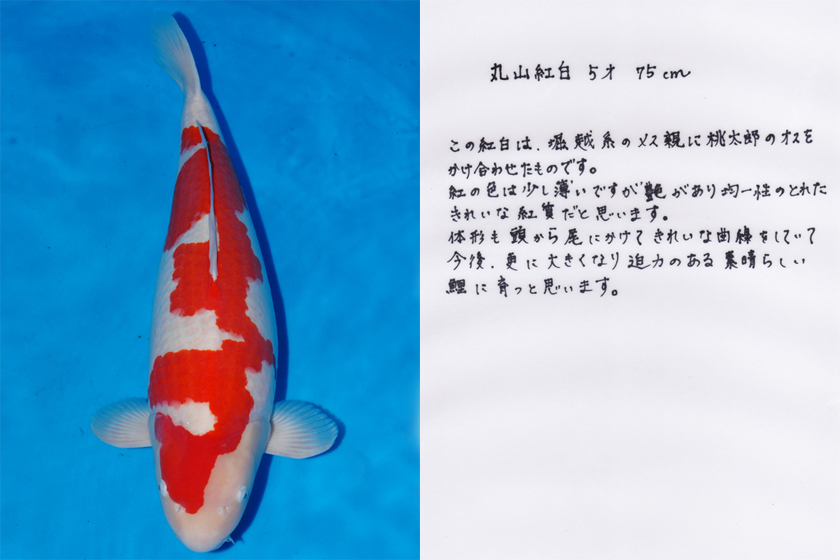 丸山紅白 5才 75cm
この紅白は、堀越系のメス親に桃太郎のオスを
かけ合わせたものです。
紅の色は少し薄いですが艶があり均一性のとれた
きれいな紅質だと思います。
体形も頭から尾にかけてきれいな曲線をしていて
今後、更に大きくなり迫力のある素晴らしい
鯉に育つと思います。